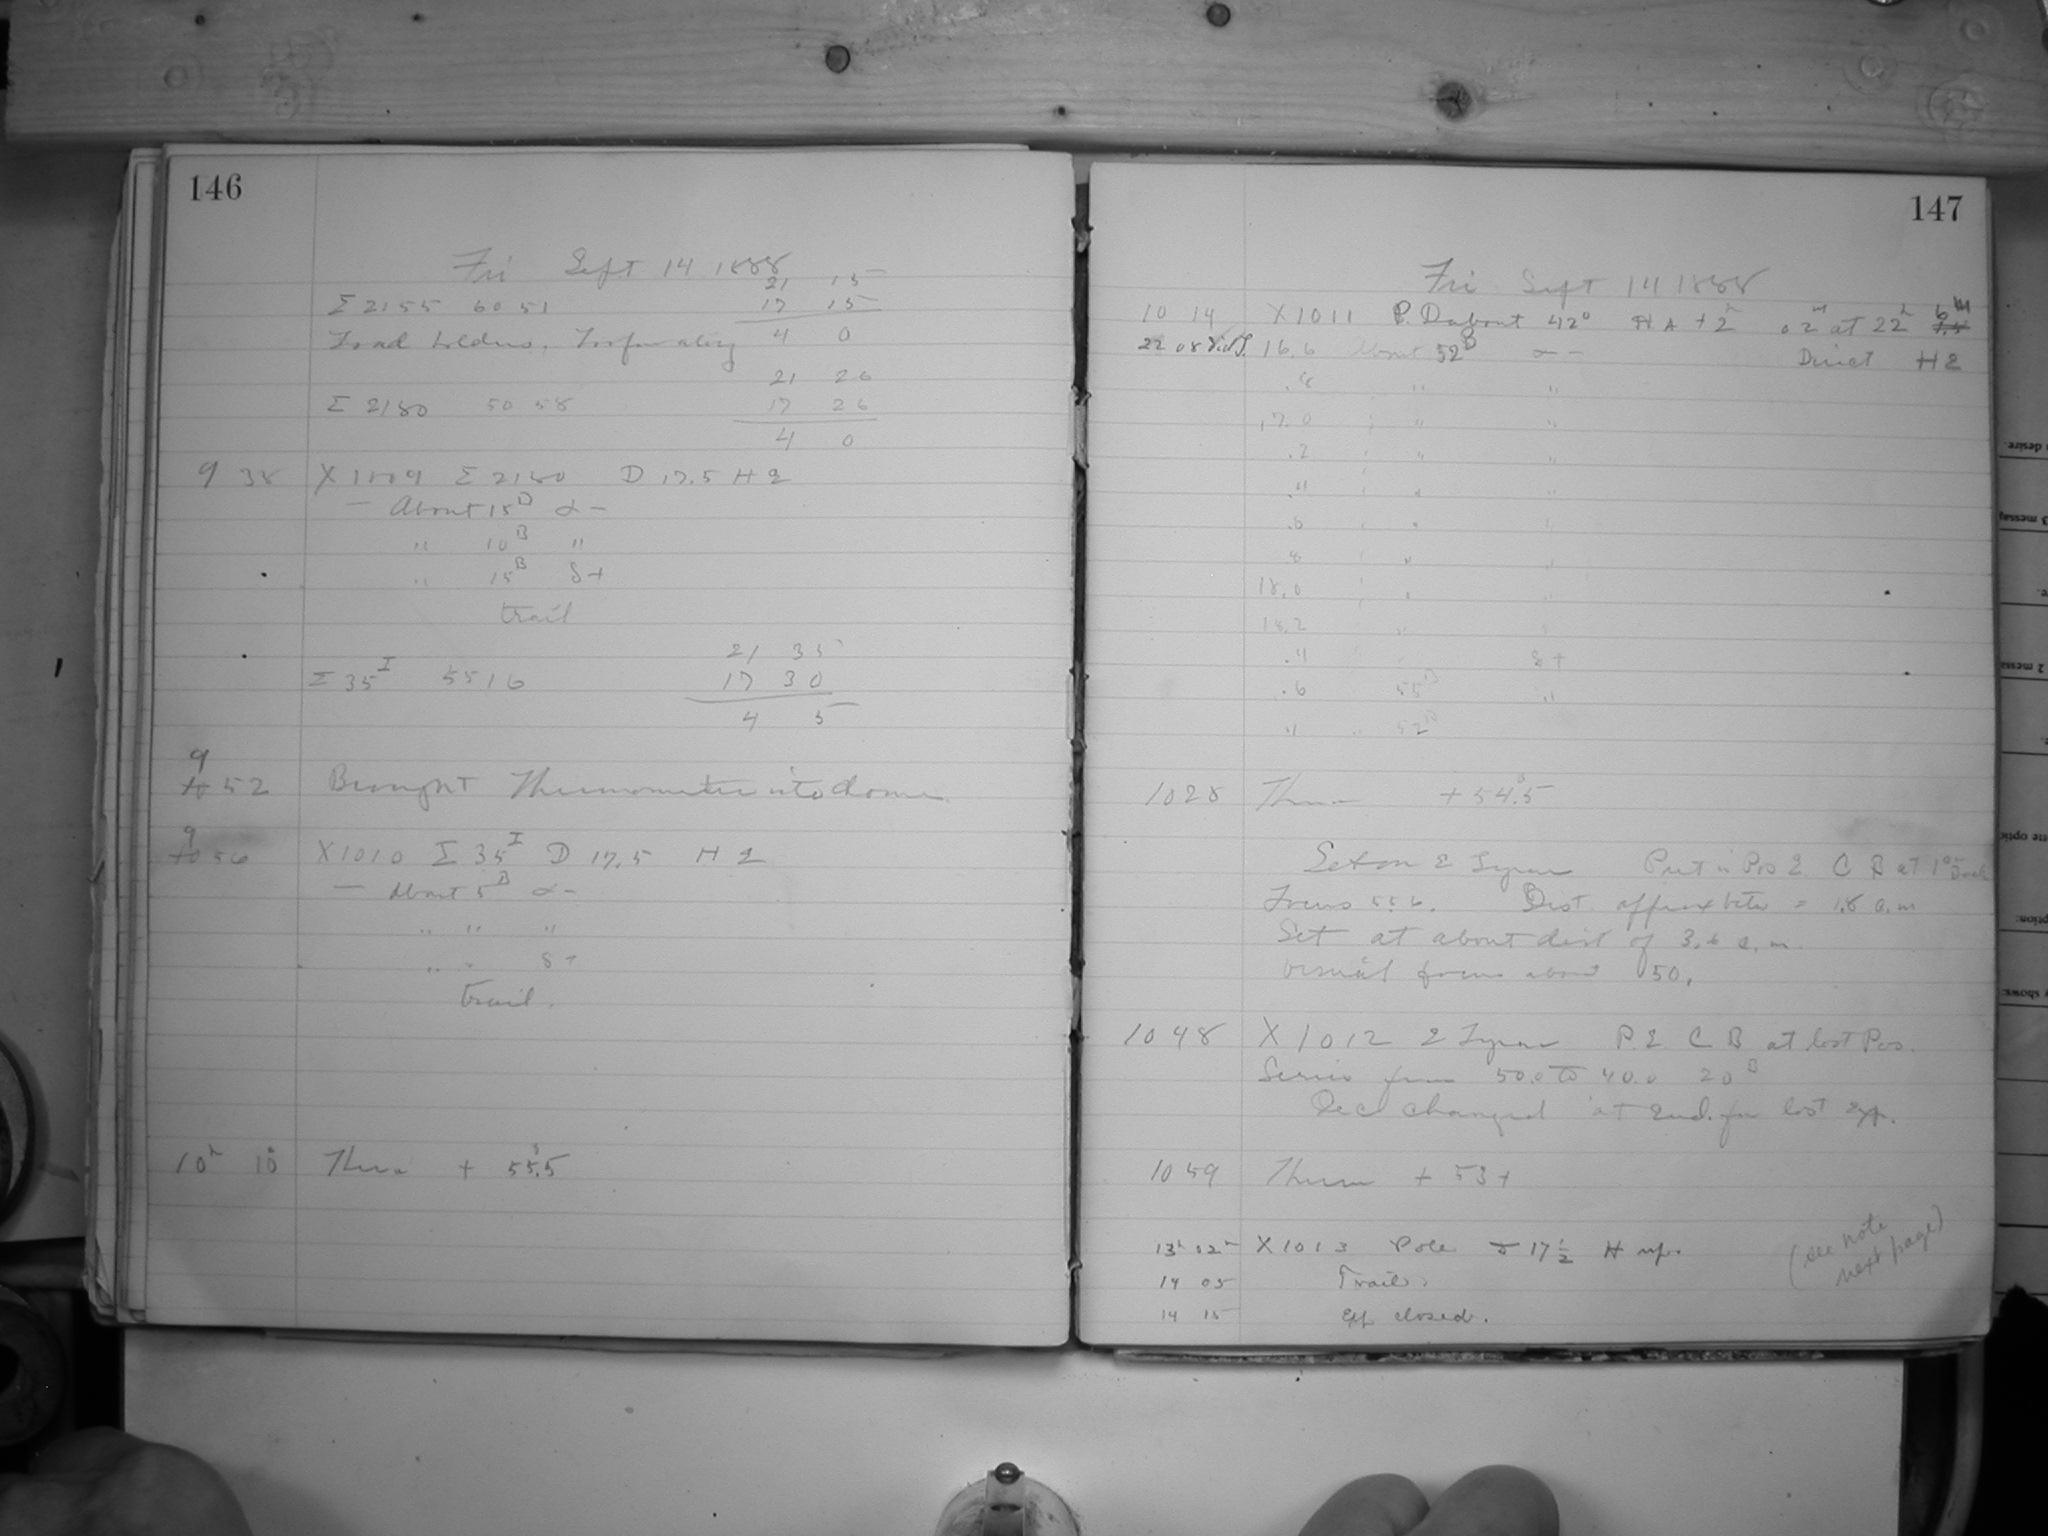 146
Fri Sept 14 1888
21 15
Σ 2155 60 51 17 15
4 0
21 26
Σ 2180 50 58 17 26
4 0
9 38 X 1009 Σ 2180 D 17.5 H 2
— About 15 B α -
" 10 B "
" 15 B δ +
trail
21 35
Σ 35 I 55 16 17 30
4 5
9
10 52 Brought Thermometer into dome
9
10 56 X 1010 Σ 35 I D 17.5 H 2
— About 5 B α -
" " "
" " δ +
trail.
10 h 10 Ther + 55.5
147
Fri Sept 14 1888
10 14 X 1011 42° H A + 2 h 0 2 m at 22 h 6 m
22 08 16.6 About 52 B α - Direct H 2
.8 " "
17.0 " "
.2 " "
.4 " "
.6 " "
.8 " "
18.0 " "
18.2 " "
.4 δ +
.6 55 B "
" " 52 B
10 28 Therm + 54.5
Set on ε Lyrae Put in Pos 2 C B at 1
Focus 55.6. Dist. approx betw = 1.8 c.m
Set at about dist of 3.6 c.m.
visual focus about 50.
10 48 X 1012 ε Lyrae P. 2 C B at last Pos.
Series from 50.0 to 40.0 20 B
Dec changed at end. for last exp.
10 59 Therm + 53 +
13 h 02 m X 1013 Pole 17 1/2 H up.
(see note
next page)
14 05 Trail.
14 15 Exp closed.